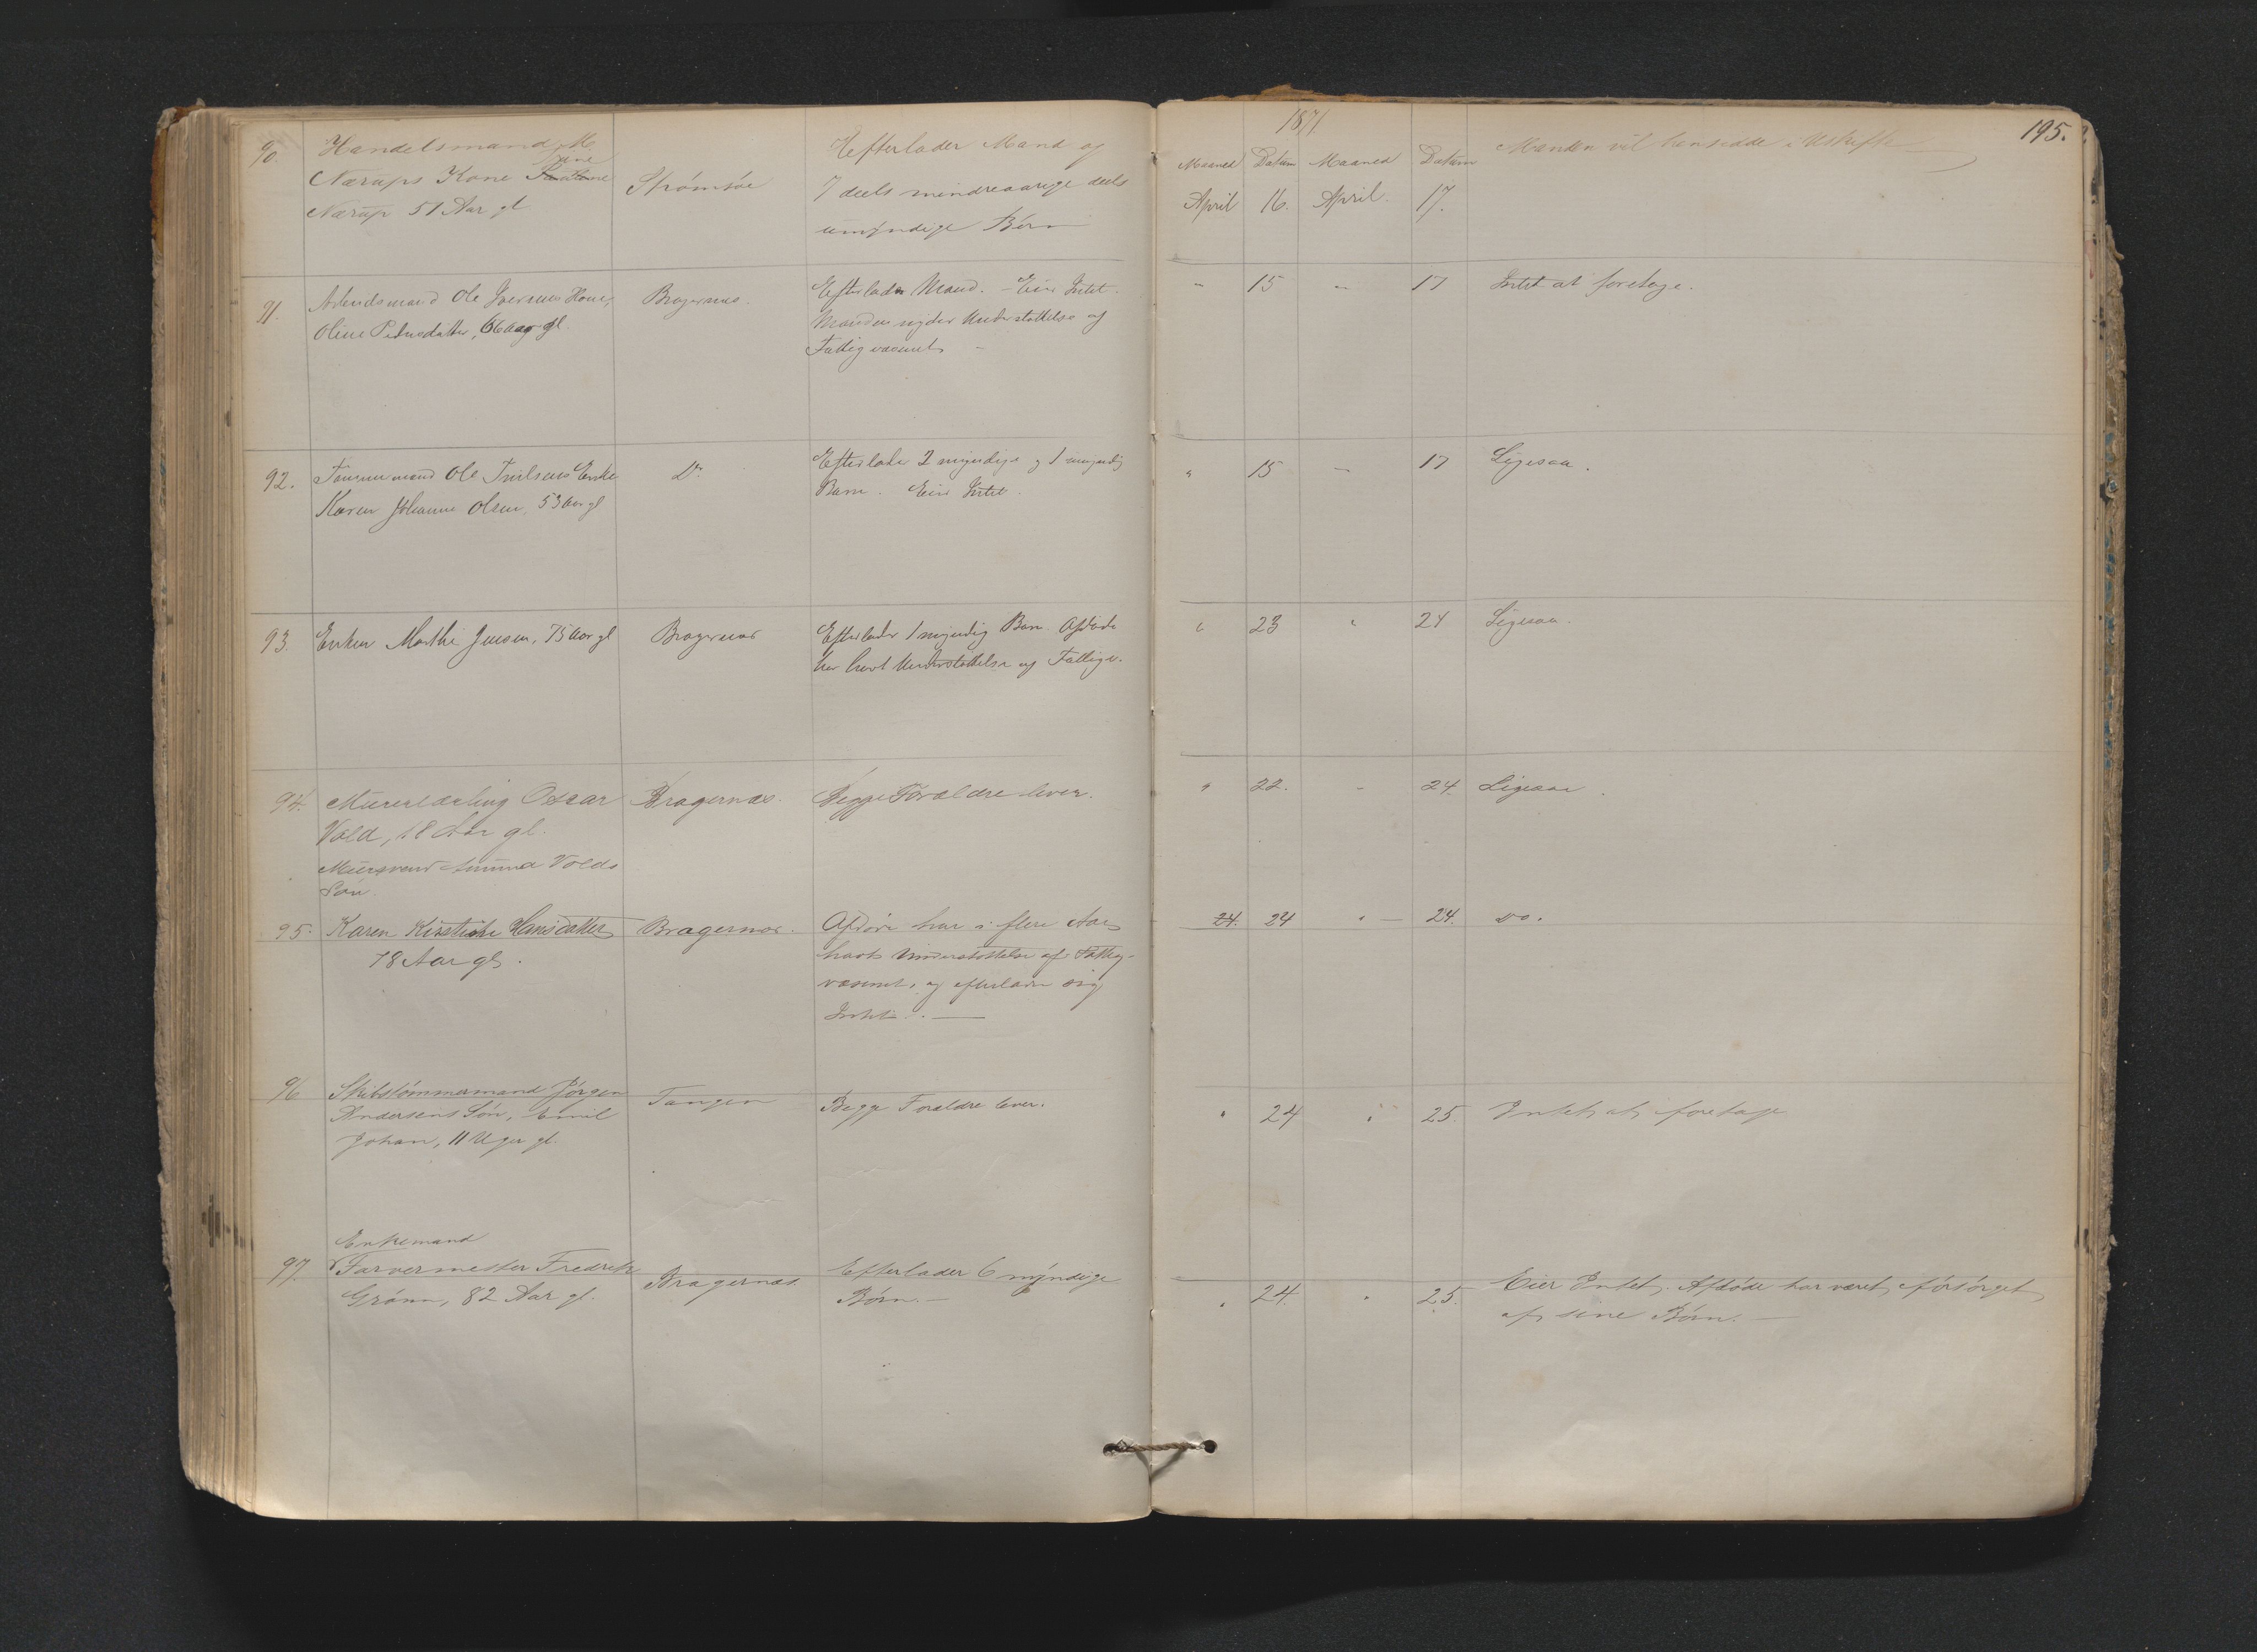 90. Handelsmand M.
Nærups Kone Jane
Nærup 51 Aar gl
Strømsøe
Efterlader Mand og
7 deels mindreaarige deels
umyndige Børn
91. Arbeidsmand Ole Iversens Kone,
Oline Pedersdatter, 66 Aar gl
Bragernæs.
Efterlader Mand. - Eier Intet.
Manden nyder Understøttelse af
Fattigvæsenet -
92. Tømmermand Ole Enke
Karen Johanne Olsen, 53 Aar gl
Do
Efterlader 2 myndige og 1 umyndig
Barn. Eier Intet.
93. Enken Marthe Jensen, 75 Aar gl
Bragernæs
Efterlader 1 myndig Barn. Afdøde
har havt Understøttelse af Fattigv.
94. Murerlærling Oscar
Vold, 18 Aar gl.
Muursvend Volds
Søn.
Bragernæs.
Begge Forældre lever.
95. Karen Kirstine Hansdatter
78 Aar gl.
Bragernæs.
Afdøde har i flere Aar
havt Understøttelse af Fattig-
væsenet, og efterlader sig
Intet. -
96 Skibstømmermand Jørgen
Andersens Søn, Emil
Johan, 11 Uger gl.
Tangen
Begge Forældre lever.
Enkemand
97. Farvermester Fredrik
Grønn, 82 Aar gl.
Bragernæs
Efterlader 6 myndige
Børn. -
1871
195.
Maaned Datum Maaned Datum
Manden vil hensidde i Uskifte
April 16. April. 17.
" 15 " 17 Intet at foretage.
" 15 " 17 Ligesaa.
" 23 " 24 Ligesaa.
" 22. " 24. Ligesaa.
24. 24 " 24. Do.
" 24 " 25. Intet at foretage
" 24. " 25. Eier Intet. Afdøde har været forsørget
af sine Børn. -